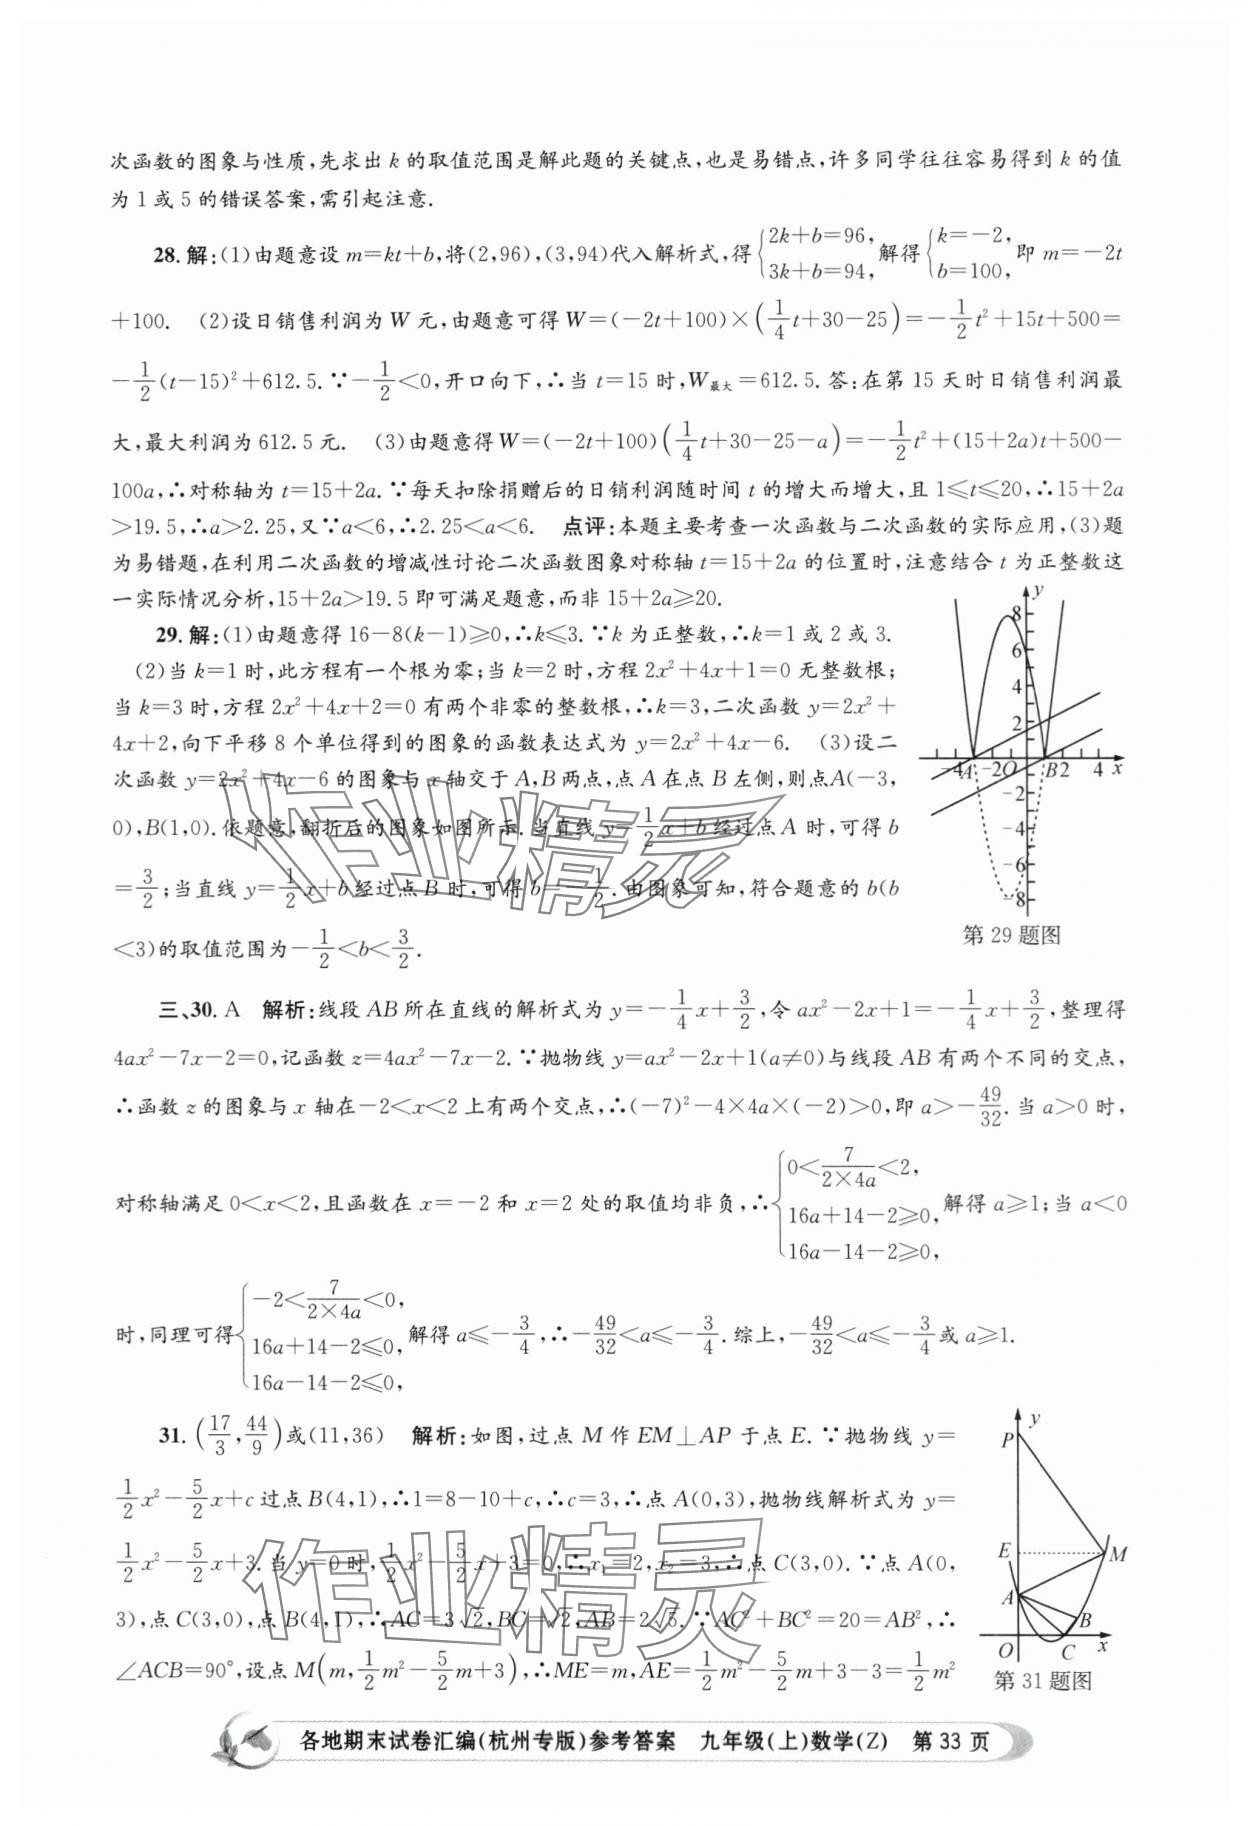 次函数的图象与性质,先求出 k 的取值范围是解此题的关键点,也是易错点,许多同学往往容易得到 k 的值
为 1 或 5 的错误答案,需引起注意.
28. 解:(1)由题意设 m=kt+b,将(2,96),(3,94)代入解析式,得{2k+b=96, 3k+b=94, 解得{k=-2, b=100, 即 m=-2t
+100. (2)设日销售利润为 W 元,由题意可得 W=(-2t+100)×(1/4 t+30-25)=-1/2 t²+15t+500=
-1/2(t-15)²+612.5.∵-1/2<0,开口向下,∴当 t=15 时,W最大=612.5.答:在第 15 天时日销售利润最
大,最大利润为 612.5 元. (3)由题意得 W=(-2t+100)(1/4 t+30-25-a)=-1/2 t²+(15+2a)t+500-
100a,∴对称轴为 t=15+2a.∵每天扣除捐赠后的日销利润随时间 t 的增大而增大,且 1≤t≤20,∴15+2a
>19.5,∴a>2.25,又∵a<6,∴2.25<a<6. 点评:本题主要考查一次函数与二次函数的实际应用,(3)题
为易错题,在利用二次函数的增减性讨论二次函数图象对称轴 t=15+2a 的位置时,注意结合 t 为正整数这
一实际情况分析,15+2a>19.5 即可满足题意,而非 15+2a≥20.
29. 解:(1)由题意得 16-8(k-1)≥0,∴k≤3.∵k 为正整数,∴k=1 或 2 或 3.
(2)当 k=1 时,此方程有一个根为零;当 k=2 时,方程 2x²+4x+1=0 无整数根;
当 k=3 时,方程 2x²+4x+2=0 有两个非零的整数根,∴k=3,二次函数 y=2x²+
4x+2,向下平移 8 个单位得到的图象的函数表达式为 y=2x²+4x-6. (3)设二
次函数 y=2x²+4x-6 的图象与 x 轴交于 A,B 两点,点 A 在点 B 左侧,则点A(-3,
0),B(1,0).依题意,翻折后的图象如图所示.当直线 y=1/2 x+b 经过点 A 时,可得 b
=3/2;当直线 y=1/2 x+b 经过点 B 时,可得 b=-1/2.由图象可知,符合题意的 b(b
<3)的取值范围为-1/2<b<3/2.
y
8
6
4
2
-4 A -2 O B 2 4 x
-2
-4
-6
-8
第 29 题图
三、30. A 解析:线段 AB 所在直线的解析式为 y=-1/4 x+3/2,令 ax²-2x+1=-1/4 x+3/2,整理得
4ax²-7x-2=0,记函数 z=4ax²-7x-2.∵抛物线 y=ax²-2x+1(a≠0)与线段 AB 有两个不同的交点,
∴函数 z 的图象与 x 轴在-2<x<2 上有两个交点,∴(-7)²-4×4a×(-2)>0,即 a>-49/32.当 a>0 时,
对称轴满足 0<x<2,且函数在 x=-2 和 x=2 处的取值均非负,∴{0<7/(2×4a)<2, 16a+14-2≥0, 16a-14-2≥0, 解得 a≥1;当 a<0
时,同理可得{-2<7/(2×4a)<0, 16a+14-2≤0, 16a-14-2≤0, 解得 a≤-3/4,∴-49/32<a≤-3/4.综上,-49/32<a≤-3/4或 a≥1.
31. (17/3,44/9)或(11,36) 解析:如图,过点 M 作 EM⊥AP 于点 E.∵抛物线 y=
1/2 x²-5/2 x+c 过点 B(4,1),∴1=8-10+c,∴c=3,∴点 A(0,3),抛物线解析式为 y=
1/2 x²-5/2 x+3.当 y=0 时,1/2 x²-5/2 x+3=0,∴x₁=2,x₂=3,∴点 C(3,0).∵点 A(0,
3),点 C(3,0),点 B(4,1),∴AC=3√2,BC=√2,AB=2√5.∵AC²+BC²=20=AB²,∴
∠ACB=90°,设点 M(m,1/2 m²-5/2 m+3),∴ME=m,AE=1/2 m²-5/2 m+3-3=1/2 m²
y
P
E
M
A
B
O C x
第 31 题图
作业精灵
作业精灵
各地期末试卷汇编(杭州专版)参考答案 九年级(上)数学(Z) 第 33 页